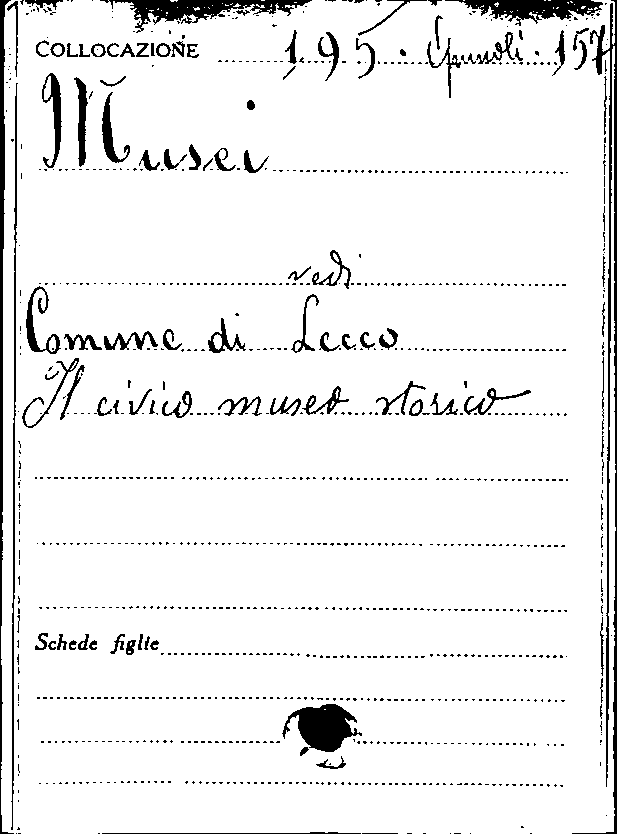 COLLOCAZIONE 195. Opuscoli. 157
Musei
vedi
Comune di Lecco
Il civico museo storico
Schede figlie